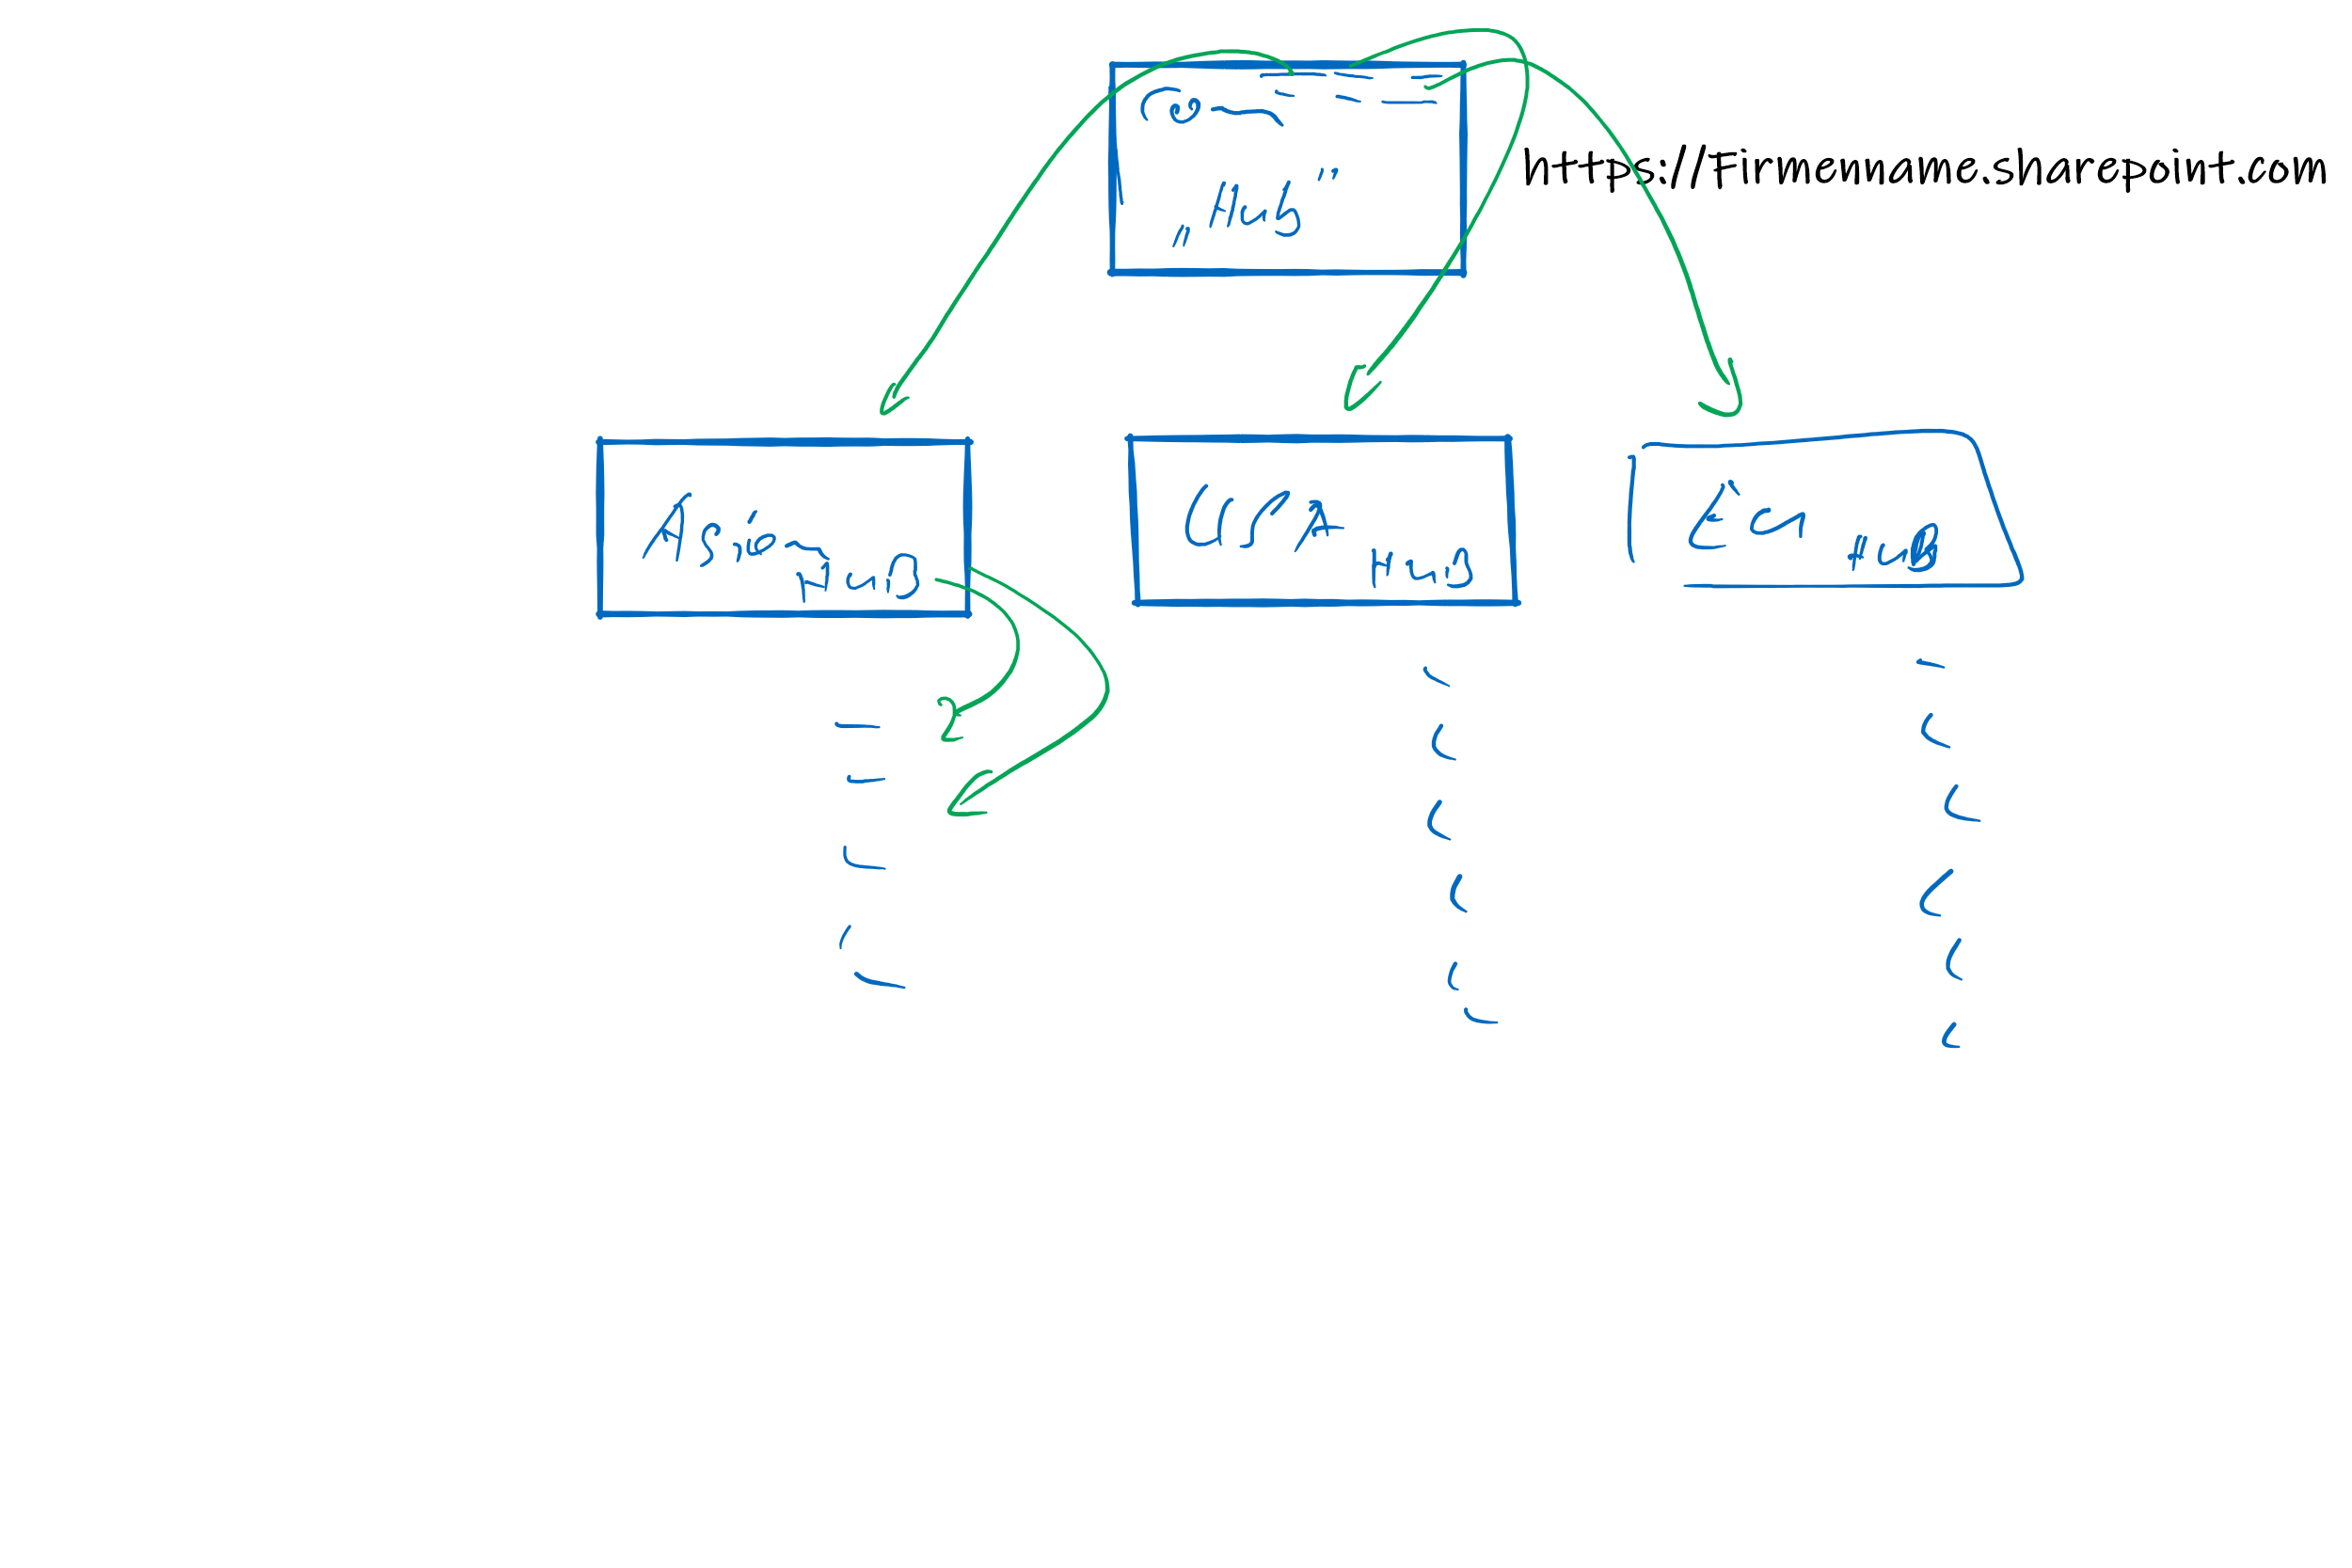 https://Firmenname.sharepoint.com
„Hub"
Asien HuB
USA HuB
Hub